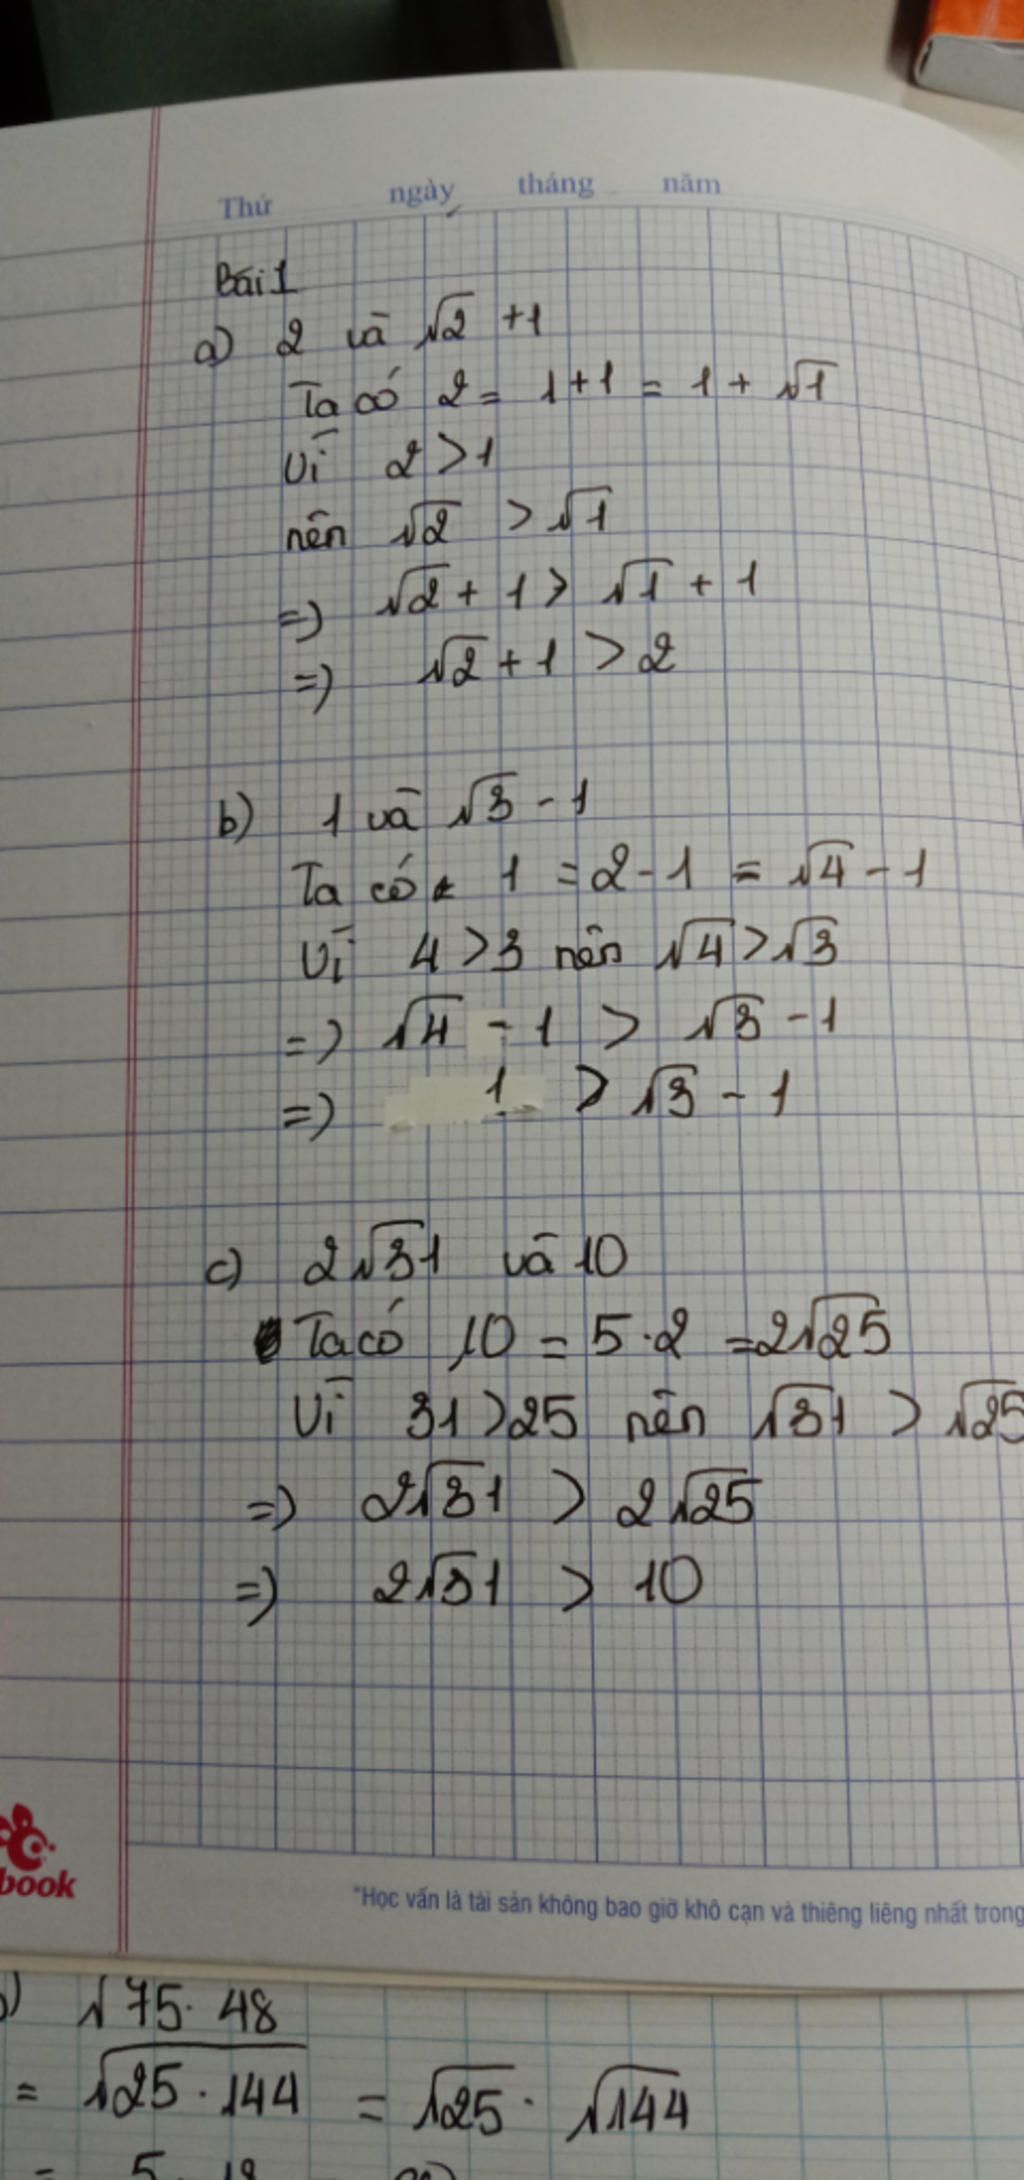 Thứ ngày tháng năm
Bài 1
a) 2 và √2 + 1
Ta có 2 = 1 + 1 = 1 + √1
Vì 2 > 1
nên √2 > √1
=> √2 + 1 > √1 + 1
=> √2 + 1 > 2
b) 1 và √3 - 1
Ta có 1 = 2 - 1 = √4 - 1
Vì 4 > 3 nên √4 > √3
=> √4 - 1 > √3 - 1
=> 1 > √3 - 1
c) 2√31 và 10
Ta có 10 = 5 . 2 = 2√25
Vì 31 > 25 nên √31 > √25
=> 2√31 > 2√25
=> 2√31 > 10
book
"Học vấn là tài sản không bao giờ khô cạn và thiêng liêng nhất trong
√75 . 48
= √25 . 144 = √25 . √144